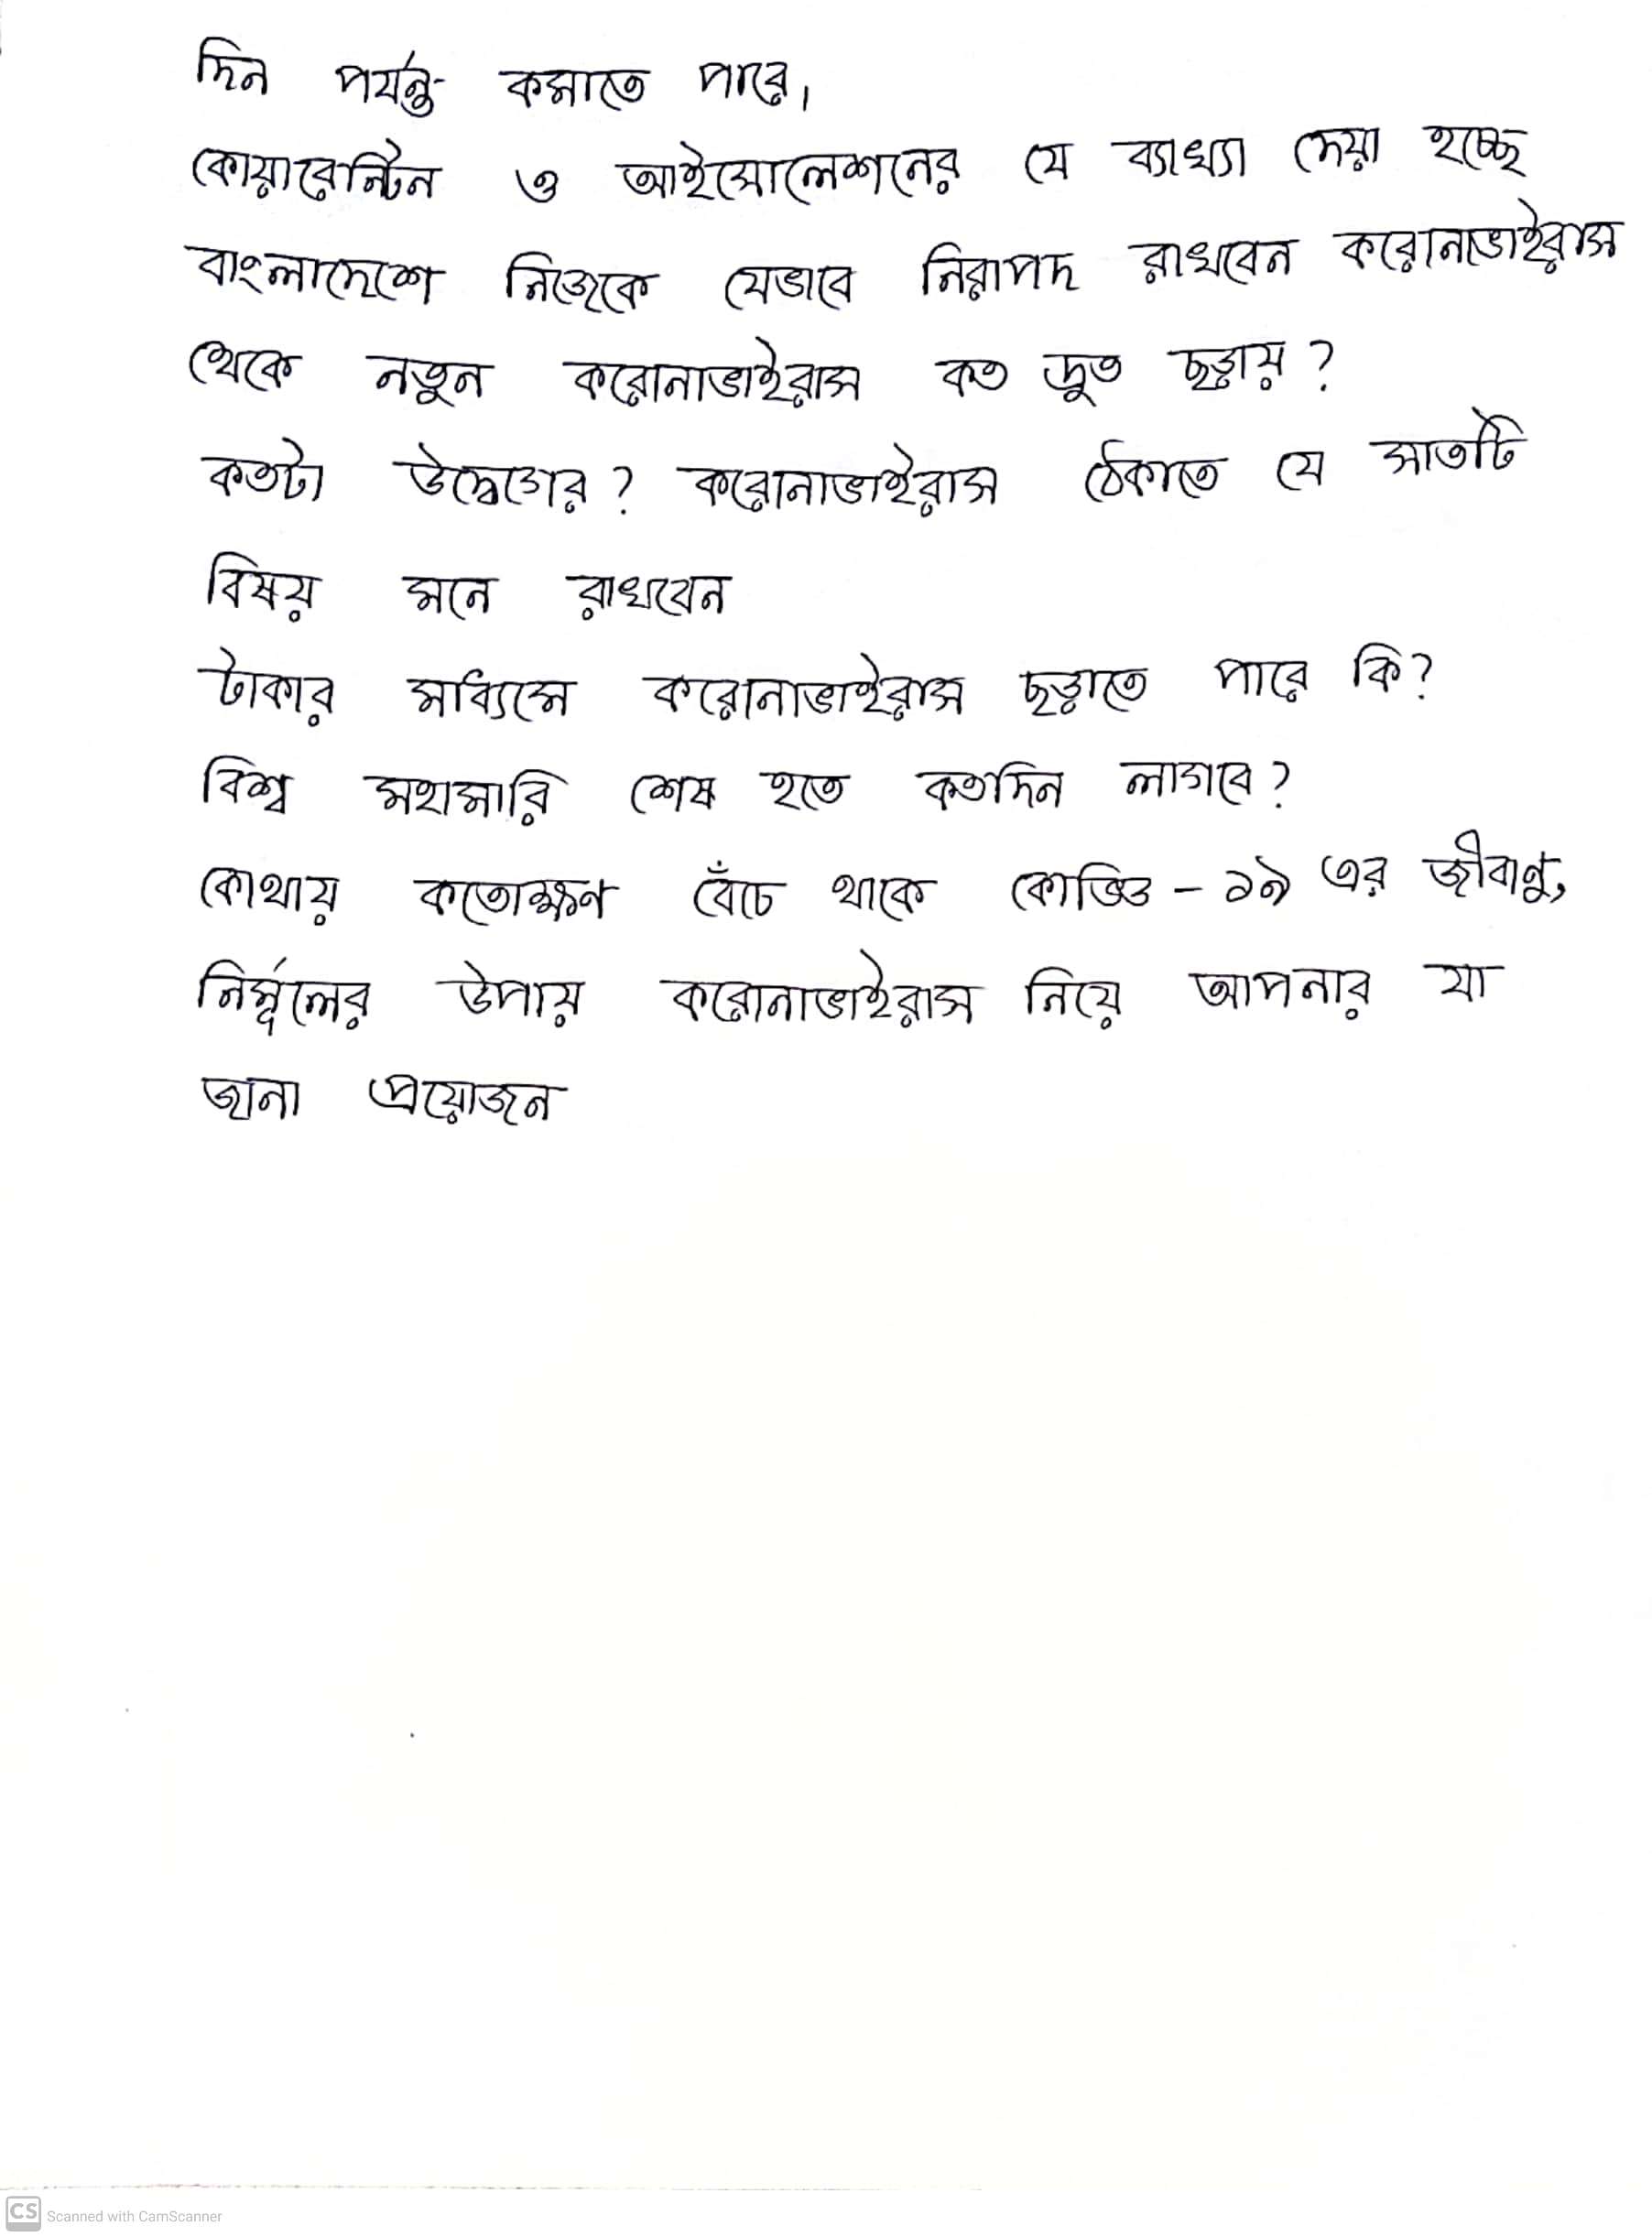 দিন পর্যন্ত কমাতে পারে।
কোয়ারেন্টিন ও আইসোলেশনের যে ব্যাখ্যা দেয়া হচ্ছে
বাংলাদেশে নিজেকে যেভাবে নিরাপদ রাখবেন করোনাভাইরাস
থেকে নতুন করোনাভাইরাস কত দ্রুত ছড়ায়?
কতটা উদ্বেগের? করোনাভাইরাস ঠেকাতে যে সাতটি
বিষয় মনে রাখবেন
টাকার মাধ্যমে করোনাভাইরাস ছড়াতে পারে কি?
বিশ্ব মহামারি শেষ হতে কতদিন লাগবে?
কোথায় কতোক্ষণ বেঁচে থাকে কোভিড - ১৯ এর জীবাণু,
নির্মূলের উপায় করোনাভাইরাস নিয়ে আপনার যা
জানা প্রয়োজন
CS Scanned with CamScanner